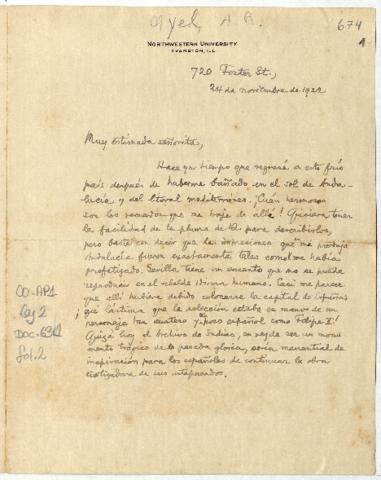 Ayel, A. A.
674
1
NORTHWESTERN UNIVERSITY
EVANSTON, ILL.
720 Foster St.,
24 de noviembre de 1922
Muy estimada señorita,
Hace ya tiempo que regresé a este frío
país después de haberme bañado en el sol de Anda-
lucía y del litoral mediterráneo. ¡Cuán hermosos
son los recuerdos que me traje de allá! Quisiera tener
la facilidad de la pluma de Ud. para describirlos,
pero baste con decir que las impresiones que me produjo
Andalucía fueron exactamente tales como me había
profetizado. Sevilla tiene un encanto que no se puede
reproducir en el rebelde idioma humano. Casi me parece
que allí hubiera debido colocarse la capital de España
¡qué lástima que la selección estaba en manos de un
personaje tan austero y poco español como Felipe II!
Quizá hoy el Archivo de Indias, en vez de ser un monu-
mento trágico de la pasada gloria, sería manantial de
inspiración para los españoles de continuar la obra
civilizadora de sus antepasados.
CO-AP1
Leg 2
DOC-63
fol. 2